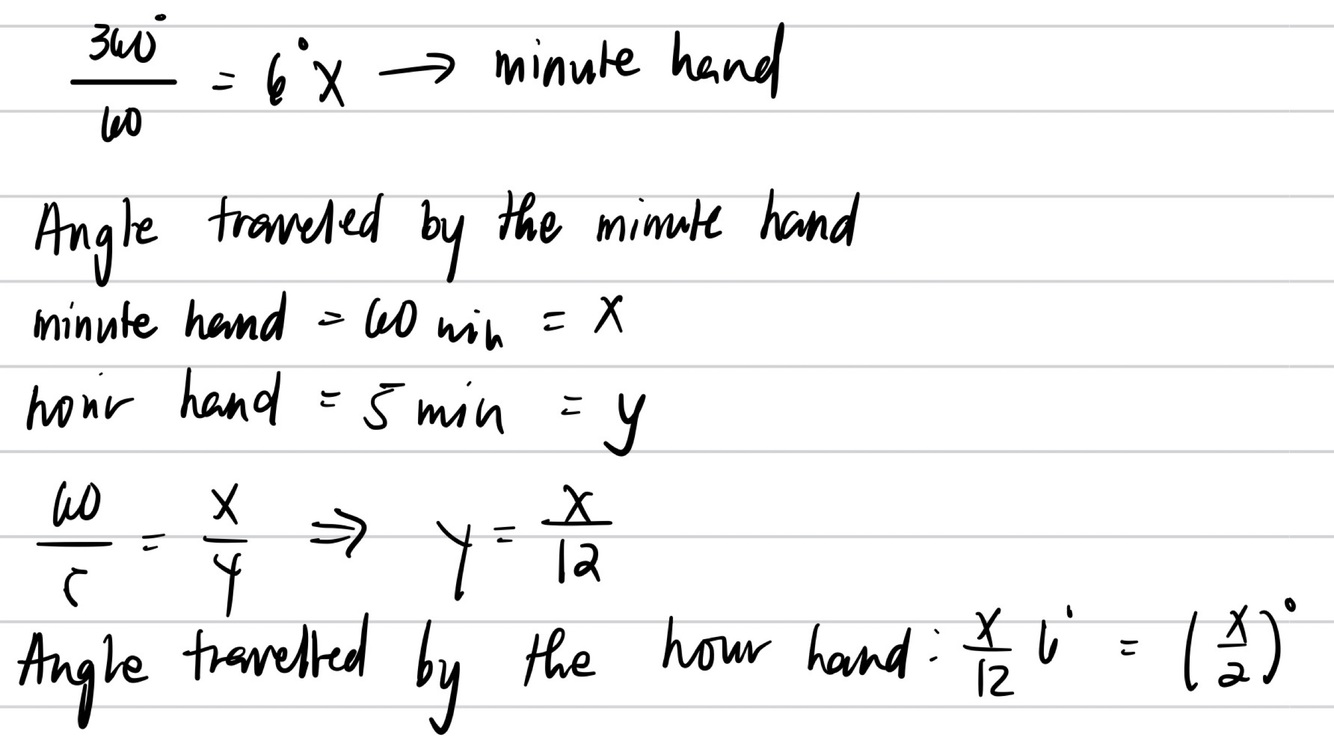 360°/60 = 6°x → minute hand
Angle traveled by the minute hand
minute hand = 60 min = x
hour hand = 5 min = y
60/5 = x/y ⇒ y = x/12
Angle travelled by the hour hand: x/12 6° = (x/2)°